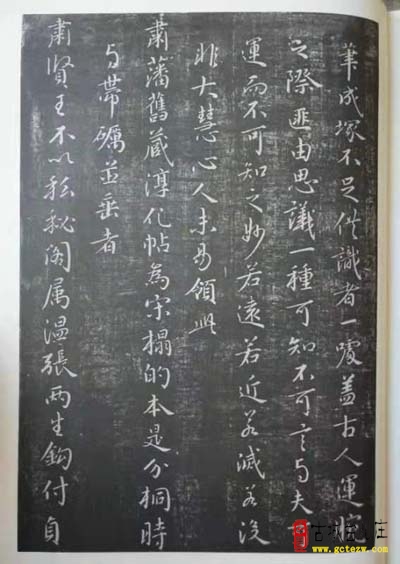 筆成塚不足供識者一噱蓋古人運腕
之際匪由思議一種可知不可言与夫可
運而不可知之妙若遠若近若滅若没
非大慧心人未易領此
肅藩舊藏淳化帖為宋搨的本是分桐時
与帶礪並垂者
肅賢王不以私秘閣属溫張兩生鉤付貞
www.gctezw.com